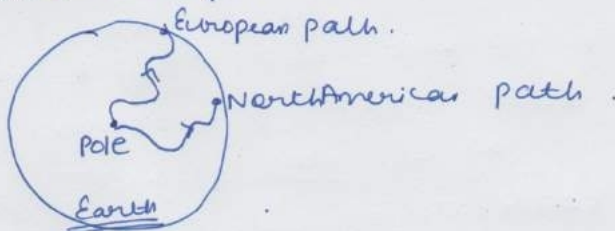 European path.
North American path.
Pole
Earth